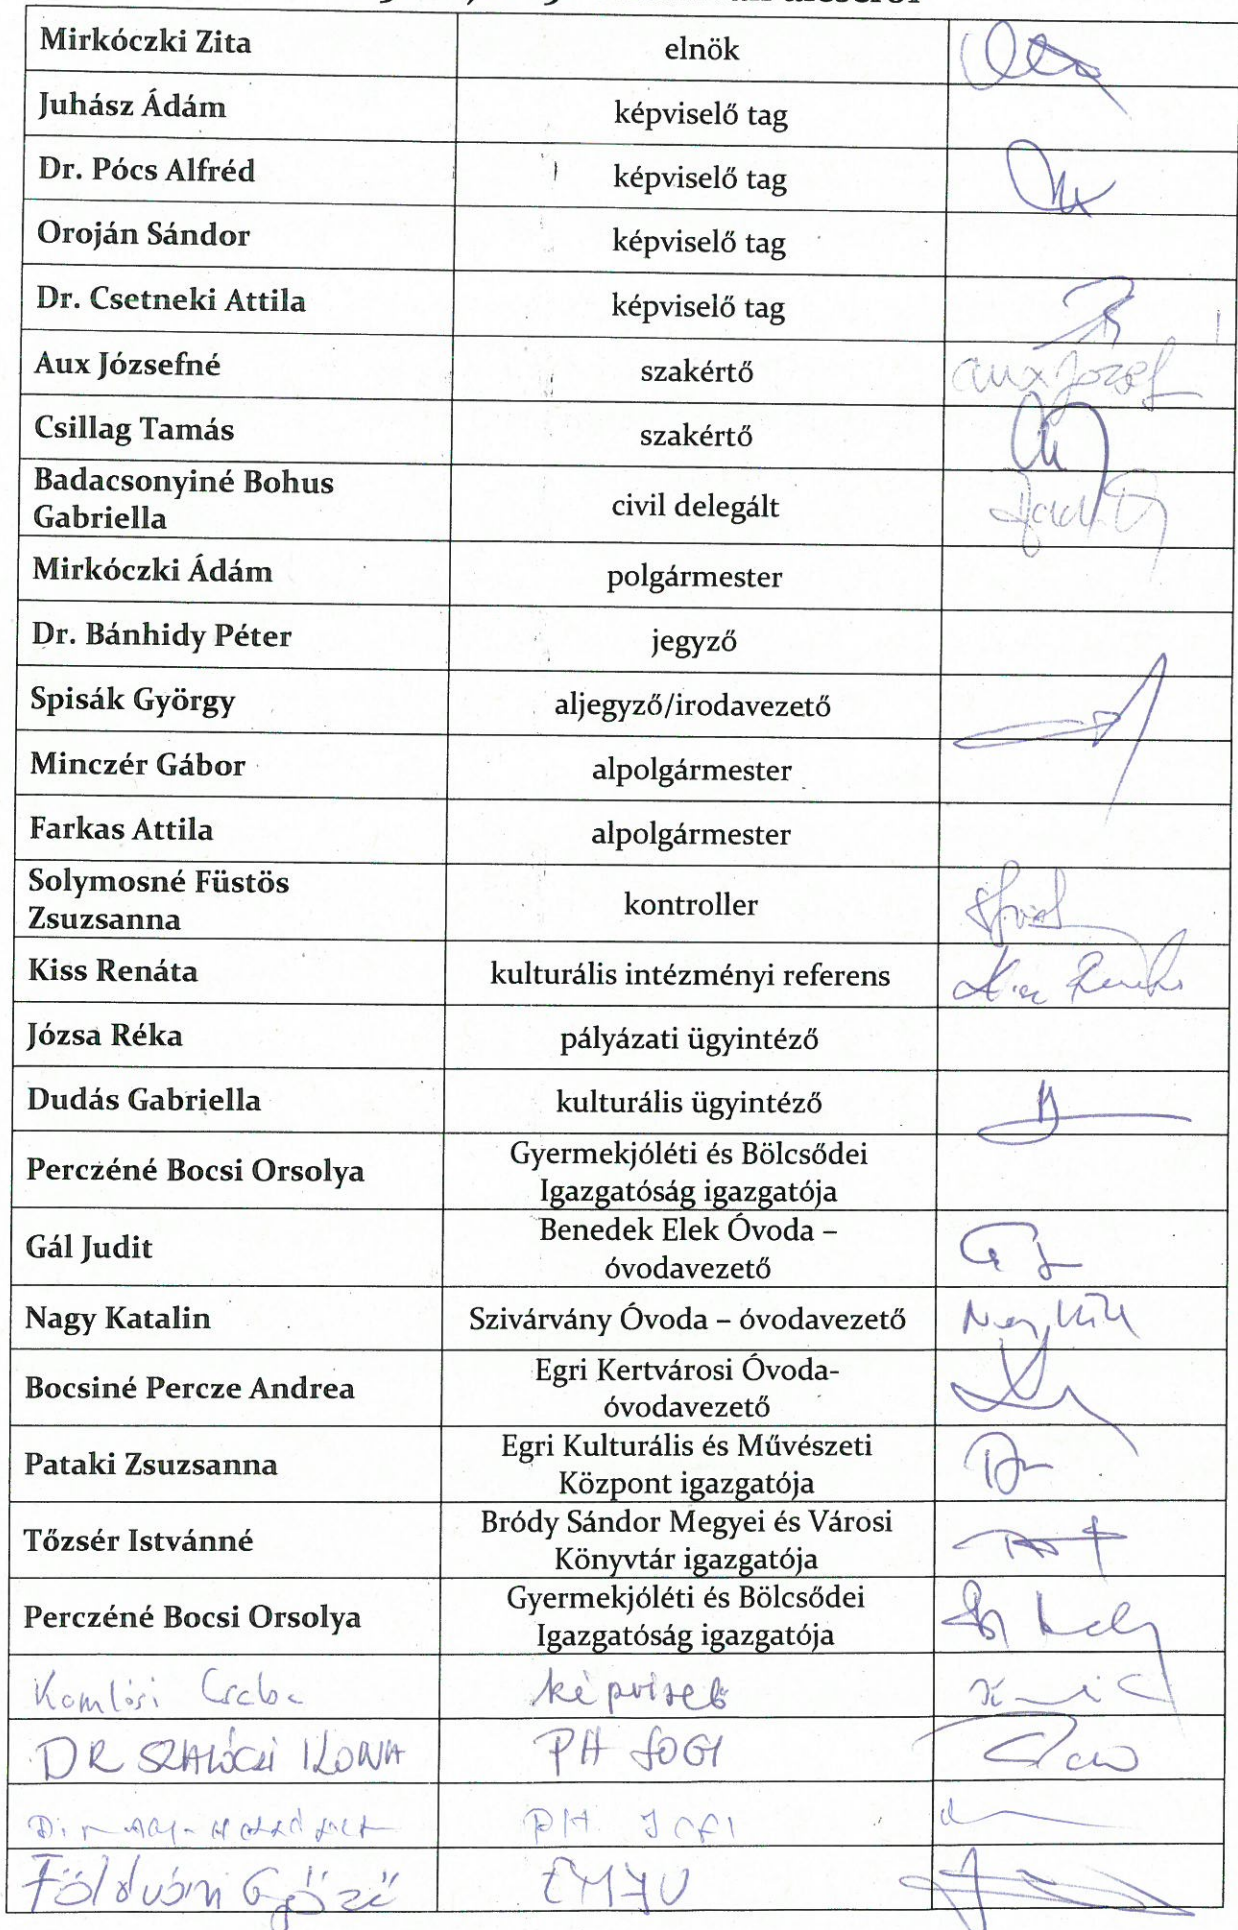 Mirkóczki Zita elnök
Juhász Ádám képviselő tag
Dr. Pócs Alfréd képviselő tag
Oroján Sándor képviselő tag
Dr. Csetneki Attila képviselő tag
Aux Józsefné szakértő Aux József
Csillag Tamás szakértő
Badacsonyiné Bohus
Gabriella civil delegált
Mirkóczki Ádám polgármester
Dr. Bánhidy Péter jegyző
Spisák György aljegyző/irodavezető
Minczér Gábor alpolgármester
Farkas Attila alpolgármester
Solymosné Füstös
Zsuzsanna kontroller
Kiss Renáta kulturális intézményi referens
Józsa Réka pályázati ügyintéző
Dudás Gabriella kulturális ügyintéző
Perczéné Bocsi Orsolya Gyermekjóléti és Bölcsődei
Igazgatóság igazgatója
Gál Judit Benedek Elek Óvoda –
óvodavezető
Nagy Katalin Szivárvány Óvoda – óvodavezető
Bocsiné Percze Andrea Egri Kertvárosi Óvoda-
óvodavezető
Pataki Zsuzsanna Egri Kulturális és Művészeti
Központ igazgatója
Tőzsér Istvánné Bródy Sándor Megyei és Városi
Könyvtár igazgatója
Perczéné Bocsi Orsolya Gyermekjóléti és Bölcsődei
Igazgatóság igazgatója
Komlósi Csaba képviselő
DR SZALÓCZI ILONA PH
PH
Földvári Győző EMJV